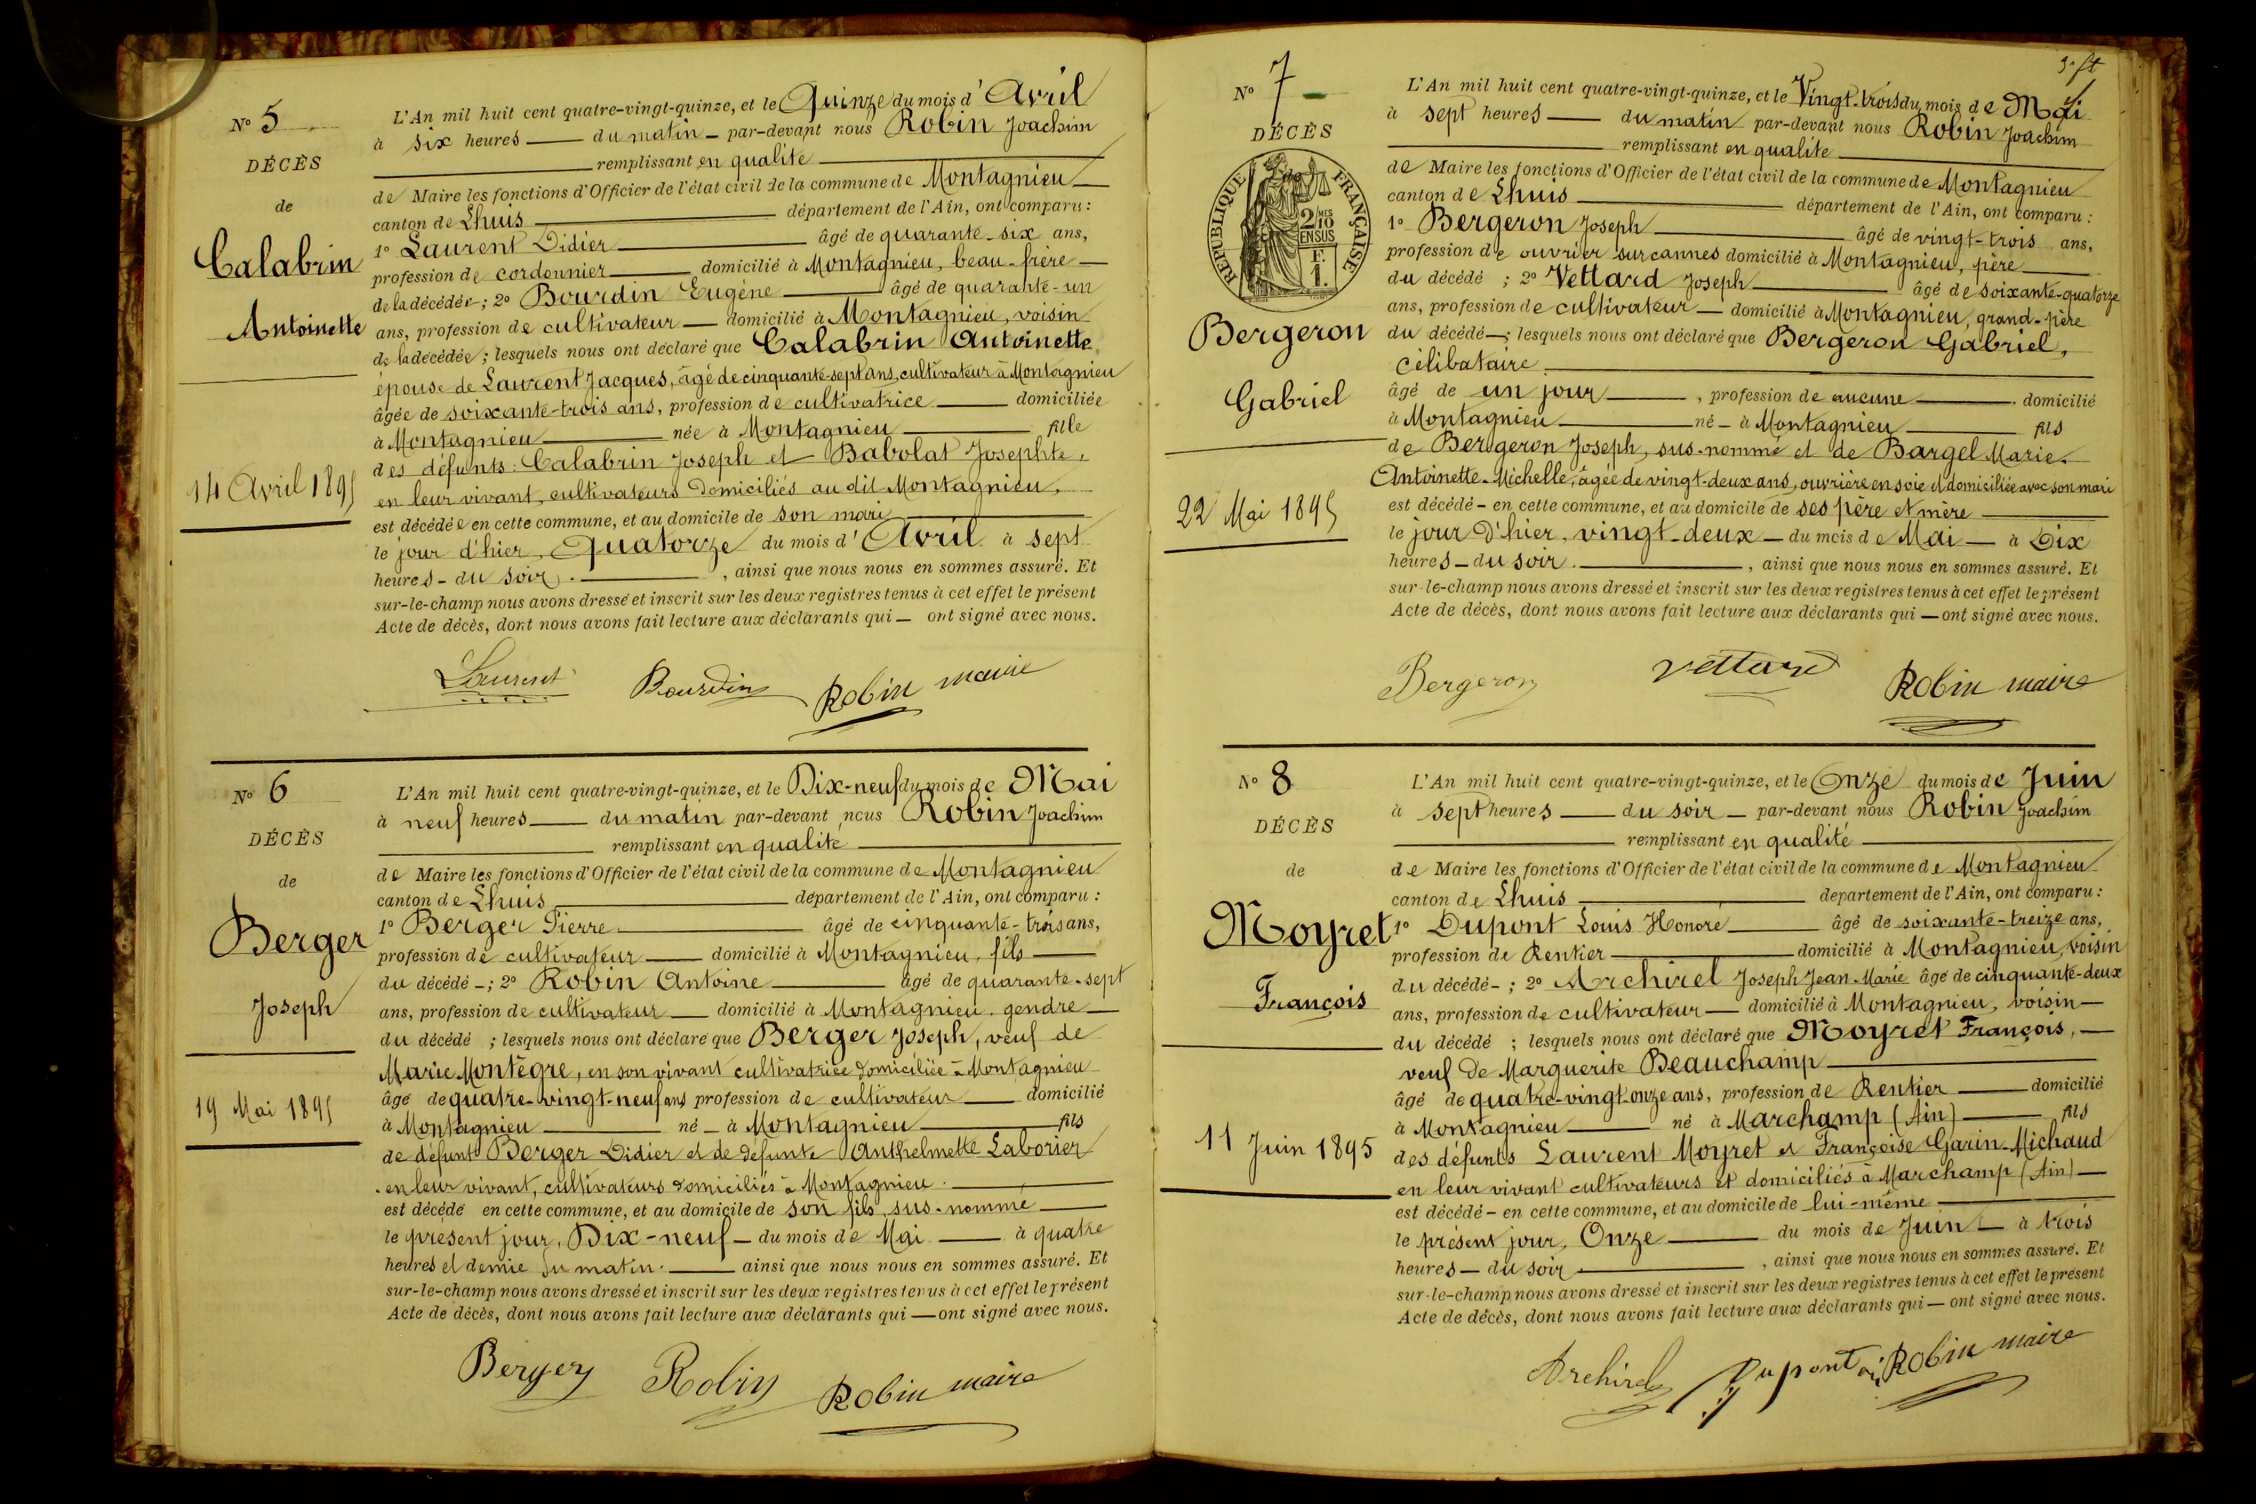 N° 5
DÉCÈS
de
Calabrin
Antoinette
14 Avril 1895
L'An mil huit cent quatre-vingt-quinze, et le Quinze du mois d'Avril
à six heures du matin par-devant nous Robin Joachim
remplissant en qualité
de Maire les fonctions d'Officier de l'état civil de la commune de Montagnieu
canton de Lhuis département de l'Ain, ont comparu :
1° Laurent Didier âgé de quarante-six ans,
profession de cordonnier domicilié à Montagnieu, beau-frère
de la décédée ; 2° Bourdin Eugène âgé de quarante-un
ans, profession de cultivateur domicilié à Montagnieu, voisin
de la décédée ; lesquels nous ont déclaré que Calabrin Antoinette
épouse de Laurent Jacques, âgé de cinquante-sept ans, cultivateur à Montagnieu
âgée de soixante-trois ans, profession de cultivatrice domiciliée
à Montagnieu née à Montagnieu fille
des défunts : Calabrin Joseph et Babolat Josephte,
en leur vivant, cultivateurs domiciliés au dit Montagnieu,
est décédée en cette commune, et au domicile de son mari
le jour d'hier, Quatorze du mois d'Avril à sept
heures du soir. , ainsi que nous nous en sommes assuré. Et
sur-le-champ nous avons dressé et inscrit sur les deux registres tenus à cet effet le présent
Acte de décès, dont nous avons fait lecture aux déclarants qui — ont signé avec nous.
Laurent Bourdin Robin maire
N° 6
DÉCÈS
de
Berger
Joseph
19 Mai 1895
L'An mil huit cent quatre-vingt-quinze, et le Dix-neuf du mois de Mai
à neuf heures du matin par-devant nous Robin Joachim
remplissant en qualité
de Maire les fonctions d'Officier de l'état civil de la commune de Montagnieu
canton de Lhuis département de l'Ain, ont comparu :
1° Berger Pierre âgé de cinquante-trois ans,
profession de cultivateur domicilié à Montagnieu, fils
du décédé ; 2° Robin Antoine âgé de quarante-sept
ans, profession de cultivateur domicilié à Montagnieu, gendre
du décédé ; lesquels nous ont déclaré que Berger Joseph, veuf de
Marie Montègre, en son vivant cultivatrice domiciliée à Montagnieu
âgé de quatre-vingt-neuf ans profession de cultivateur domicilié
à Montagnieu né à Montagnieu fils
de défunt Berger Didier et de défunte Anthelmette Laborier
en leur vivant, cultivateurs domiciliés à Montagnieu.
est décédé en cette commune, et au domicile de son fils, sus-nommé
le présent jour, Dix-neuf du mois de Mai à quatre
heures et demie du matin. ainsi que nous nous en sommes assuré. Et
sur-le-champ nous avons dressé et inscrit sur les deux registres tenus à cet effet le présent
Acte de décès, dont nous avons fait lecture aux déclarants qui — ont signé avec nous.
Berger Robin Robin maire
N° 7
DÉCÈS
de
RÉPUBLIQUE FRANÇAISE
2/10 MES EN SUS
F. 1.
Bergeron
Gabriel
22 Mai 1895
L'An mil huit cent quatre-vingt-quinze, et le Vingt-trois du mois de Mai
à sept heures du matin par-devant nous Robin Joachim
remplissant en qualité
de Maire les fonctions d'Officier de l'état civil de la commune de Montagnieu
canton de Lhuis département de l'Ain, ont comparu :
1° Bergeron Joseph âgé de vingt-trois ans,
profession de ouvrier sur cannes domicilié à Montagnieu, père
du décédé ; 2° Vettard Joseph âgé de soixante-quatorze
ans, profession de cultivateur domicilié à Montagnieu, grand-père
du décédé ; lesquels nous ont déclaré que Bergeron Gabriel,
célibataire
âgé de un jour , profession de aucune domicilié
à Montagnieu né à Montagnieu fils
de Bergeron Joseph, sus-nommé et de Bargel Marie-
Antoinette-Michelle, âgée de vingt-deux ans, ouvrière en soie et domiciliée avec son mari
est décédé en cette commune, et au domicile de ses père et mère
le jour d'hier, vingt-deux du mois de Mai à Dix
heures du soir. , ainsi que nous nous en sommes assuré. Et
sur-le-champ nous avons dressé et inscrit sur les deux registres tenus à cet effet le présent
Acte de décès, dont nous avons fait lecture aux déclarants qui — ont signé avec nous.
Bergeron Vettard Robin maire
N° 8
DÉCÈS
de
Moyret
François
11 Juin 1895
L'An mil huit cent quatre-vingt-quinze, et le Onze du mois de Juin
à sept heures du soir par-devant nous Robin Joachim
remplissant en qualité
de Maire les fonctions d'Officier de l'état civil de la commune de Montagnieu
canton de Lhuis département de l'Ain, ont comparu :
1° Dupont Louis Honoré âgé de soixante-treize ans,
profession de Rentier domicilié à Montagnieu, voisin
du décédé ; 2° Archirel Joseph Jean Marie âgé de cinquante-deux
ans, profession de cultivateur domicilié à Montagnieu, voisin
du décédé ; lesquels nous ont déclaré que Moyret François,
veuf de Marguerite Beauchamp
âgé de quatre-vingt-onze ans, profession de Rentier domicilié
à Montagnieu né à Marchamp (Ain) fils
des défunts Laurent Moyret et Françoise Garin-Michaud
en leur vivant cultivateurs et domiciliés à Marchamp (Ain)
est décédé en cette commune, et au domicile de lui-même
le présent jour, Onze du mois de Juin à trois
heures du soir , ainsi que nous nous en sommes assuré. Et
sur-le-champ nous avons dressé et inscrit sur les deux registres tenus à cet effet le présent
Acte de décès, dont nous avons fait lecture aux déclarants qui — ont signé avec nous.
Archirel Dupont Robin maire